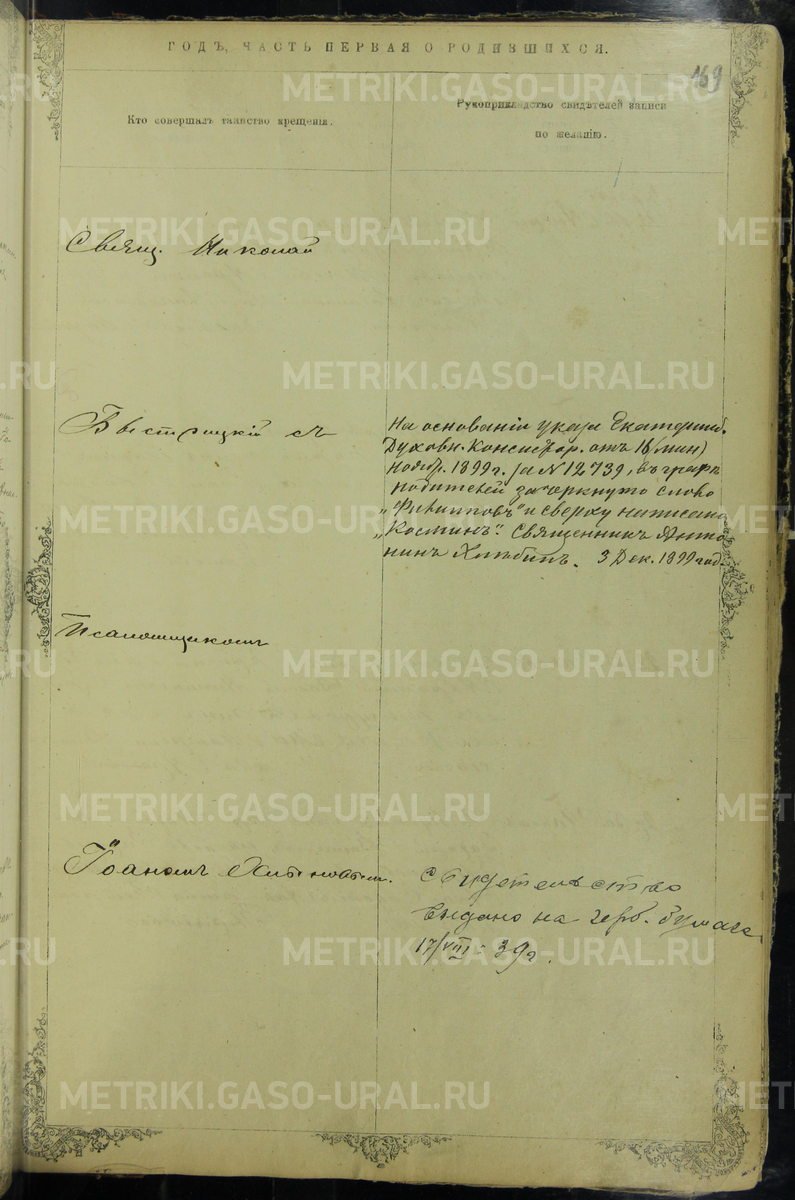 ГОДЪ, ЧАСТЬ ПЕРВАЯ О РОДИВШИХСЯ.
169
Кто совершалъ таинство крещенія.
Рукоприкладство свидѣтелей записи
по желанію.
Свящ. Николай
Быстрицкій съ
На основаніи указа Екатеринб.
Духовн. Консистор. отъ 16 (мин)
Нояб. 1899 г. за N 12739, въ графѣ
родителей зачеркнуто слово
„Филипповъ" и сверху написано
„Косминъ". Священникъ Анто-
нинъ Хлѣбинъ. 3 Дек. 1899 год.
Псаломщикомъ
Іоаномъ
Свидетельство
выдано на герб. бумаге
17/VIII - 39 г.
METRIKI.GASO-URAL.RU